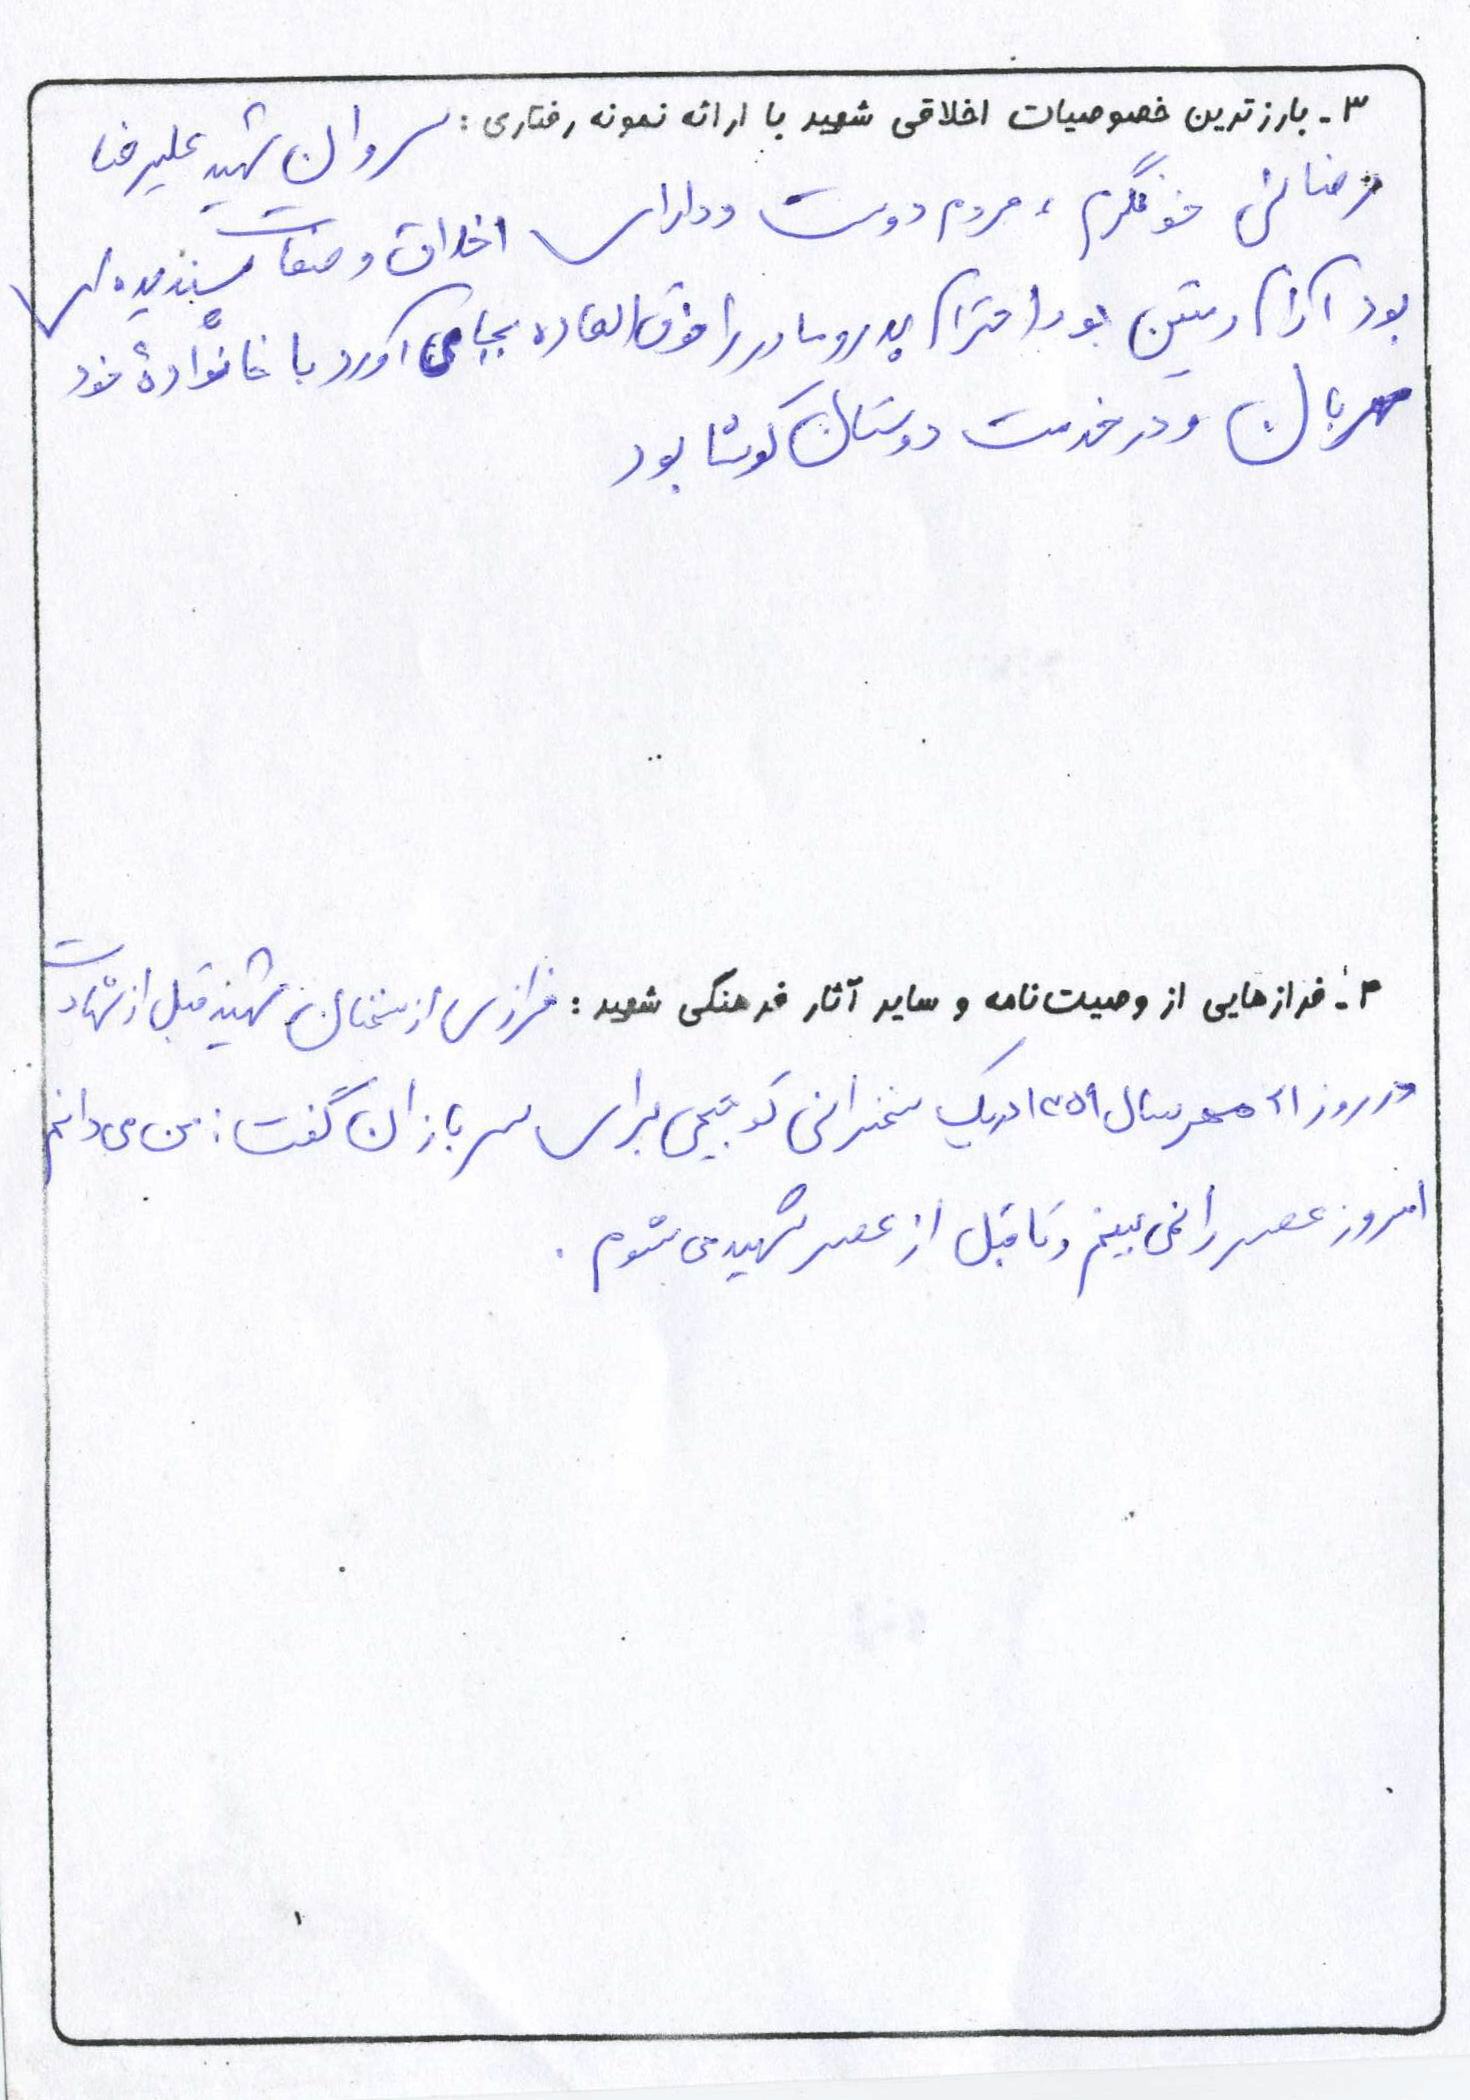 ۳- بارزترین خصوصیات اخلاقی شهید با ارائه نمونه رفتاری: سروان شهید علیرضا
رضائی خونگرم، مردم دوست و دارای اخلاق و صفات پسندیده ای
بود آرام و متین بود احترام پدر و مادر را فوق العاده بجا می آورد با خانوادهٔ خود
مهربان و در خدمت دوستان کوشا بود
۴- فرازهایی از وصیت‌نامه و سایر آثار فرهنگی شهید: فرازی از سخنان شهید قبل از شهادت
در روز ۲۱ مهر سال ۱۳۵۹ در یک سخنرانی توجیهی برای سربازان گفت: من می دانم
امروز عصر را نمی بینم و تا قبل از عصر شهید می شوم.